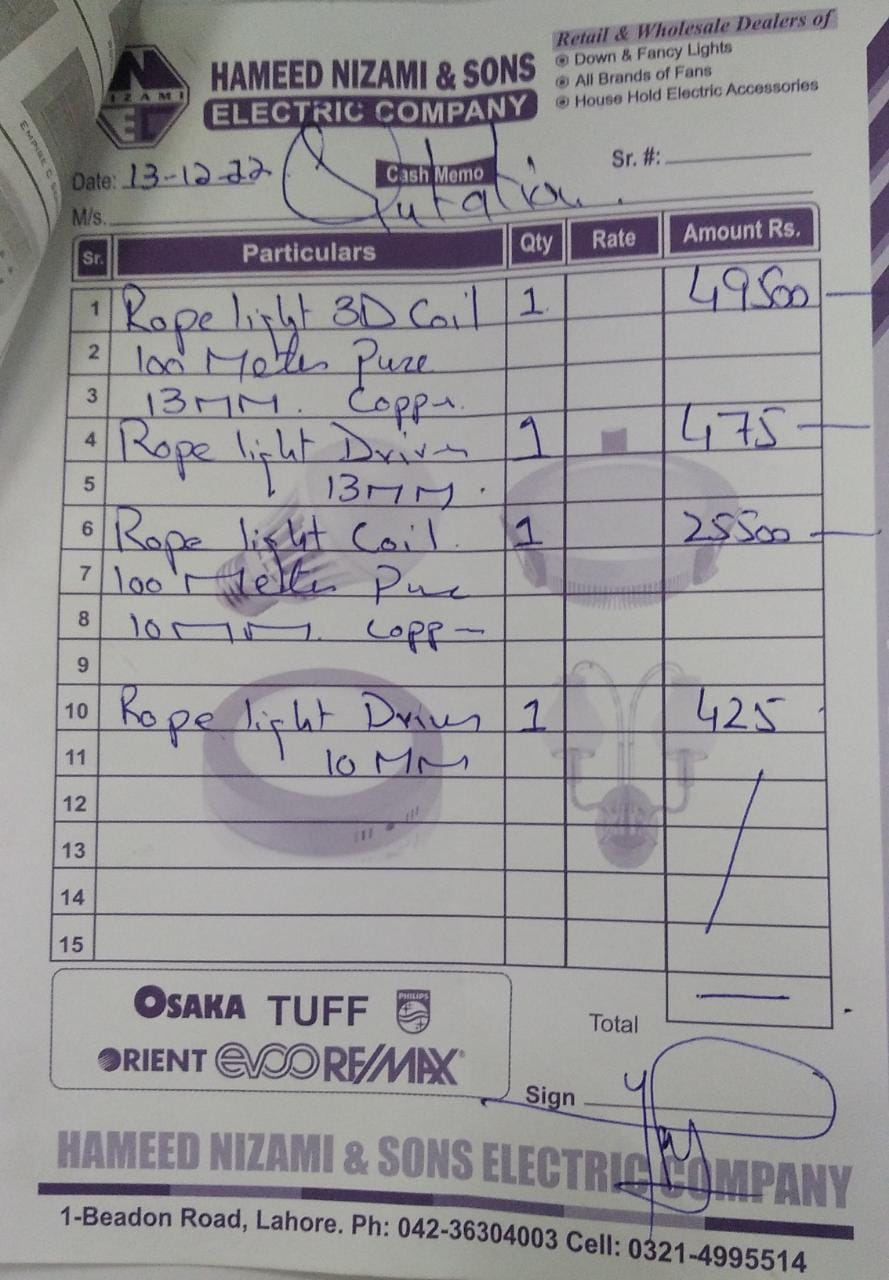 NIZAMI
HAMEED NIZAMI & SONS
ELECTRIC COMPANY
Retail & Wholesale Dealers of
Down & Fancy Lights
All Brands of Fans
House Hold Electric Accessories
Date: 13-12-22
Cash Memo
Qutation.
Sr. #:
M/s.
Sr. Particulars Qty Rate Amount Rs.
1 Rope light 3D Coil 1 49500
2 100 Meter Pure
3 13MM. Copper.
4 Rope light Driver 1 475
5 13MM.
6 Rope light Coil. 1 25500
7 100 Meter Pure
8 10MM. Copper
9
10 Rope light Driver 1 425
11 10 MM
12
13
14
15
OSAKA TUFF PHILIPS
ORIENT evco RE/MAX
Total —
Sign
HAMEED NIZAMI & SONS ELECTRIC COMPANY
1-Beadon Road, Lahore. Ph: 042-36304003 Cell: 0321-4995514